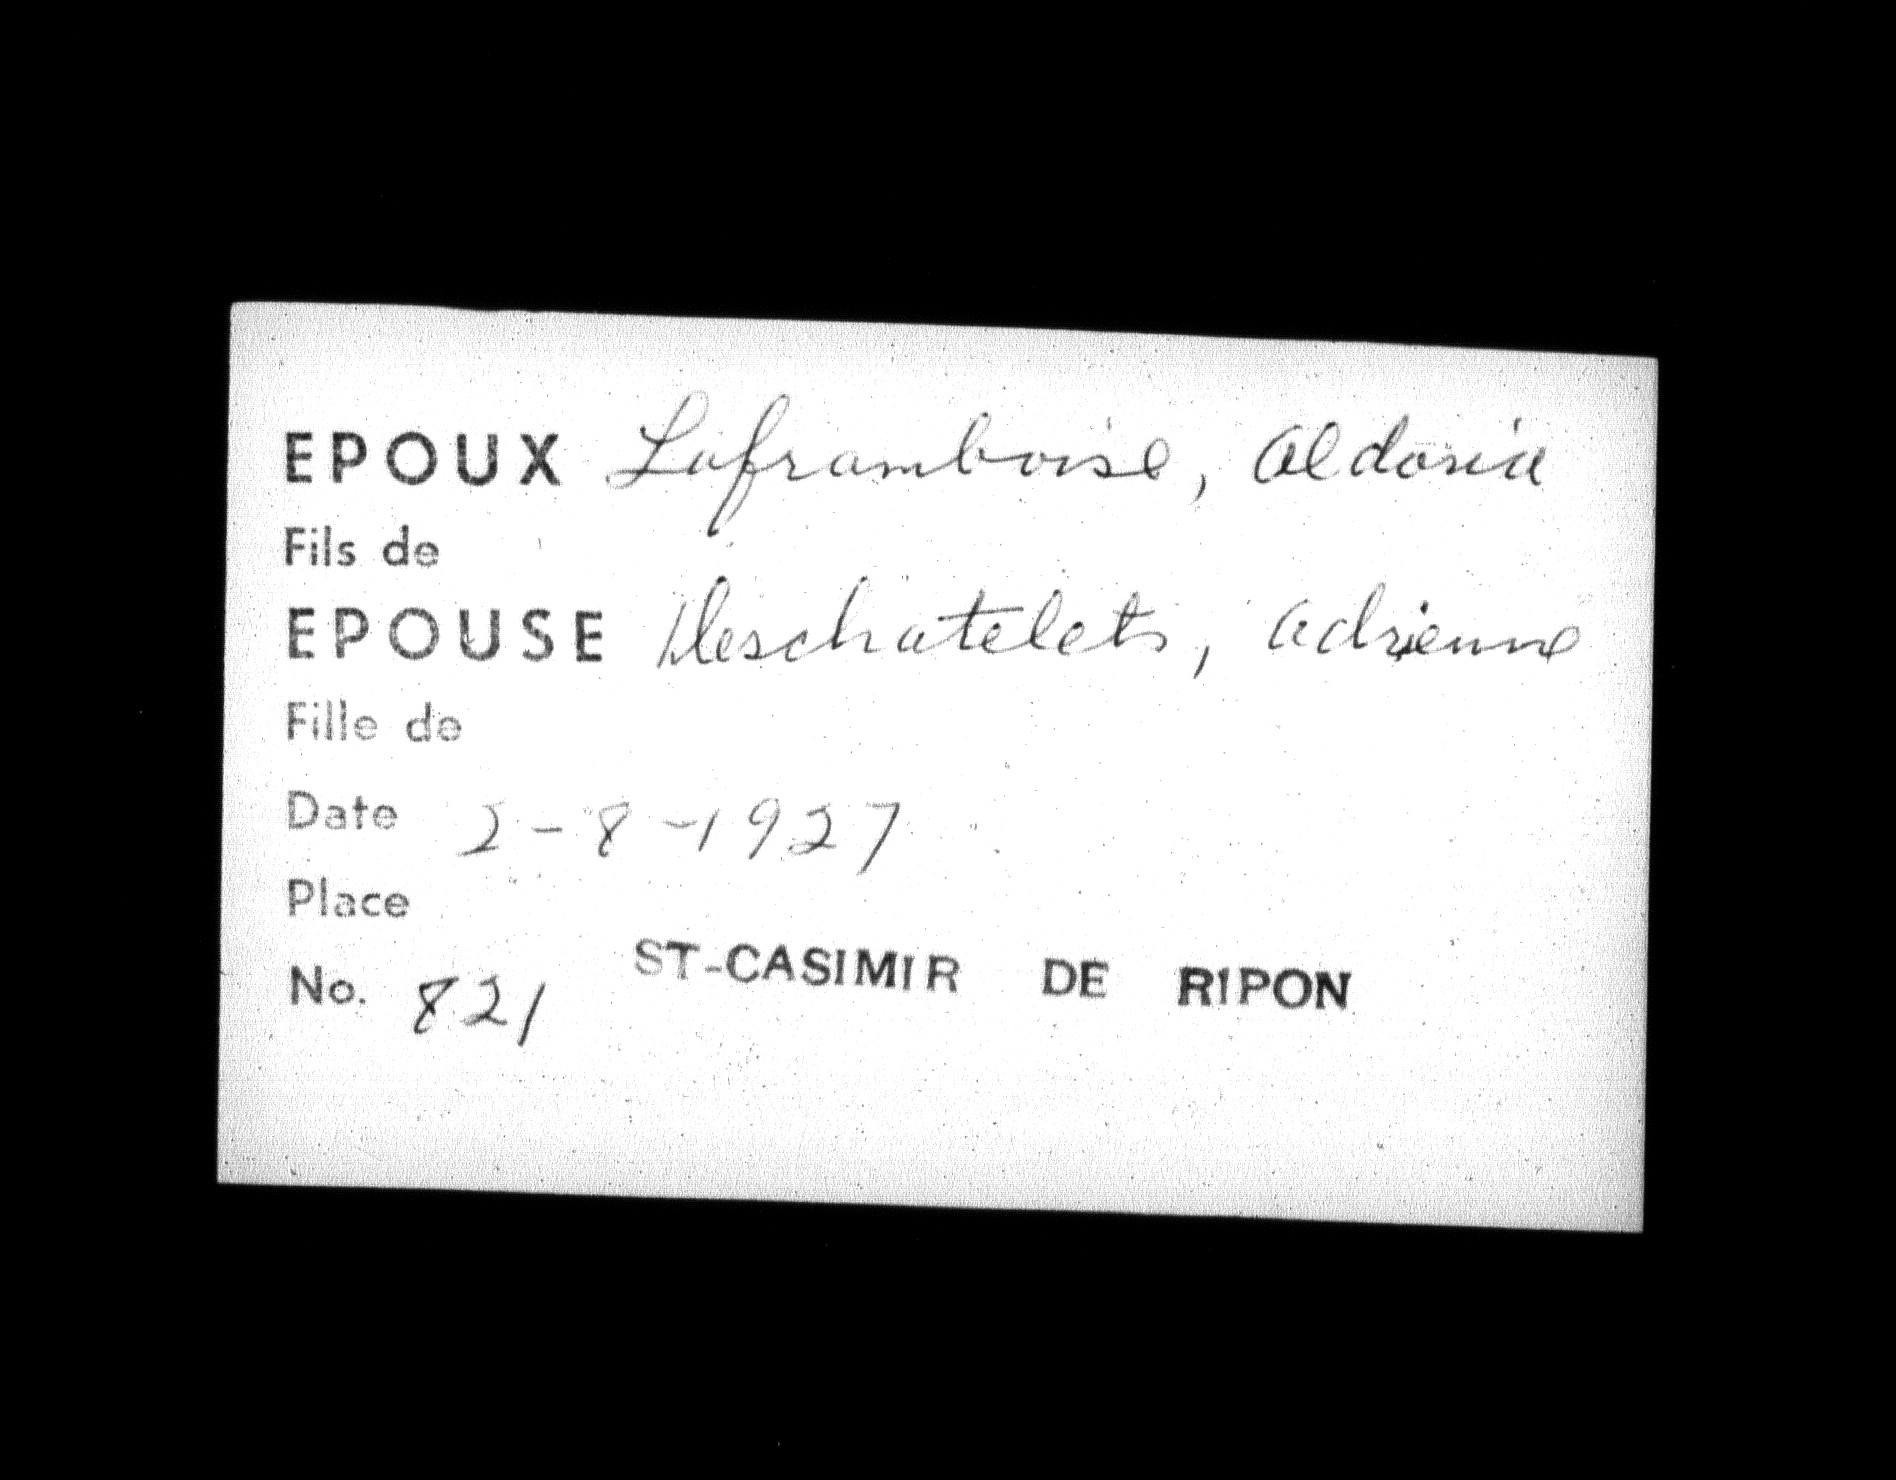 EPOUX Laframboise, Aldoria
Fils de
EPOUSE Deschatelets, Adrienne
Fille de
Date 2-8-1927
Place
ST-CASIMIR DE RIPON
No. 821